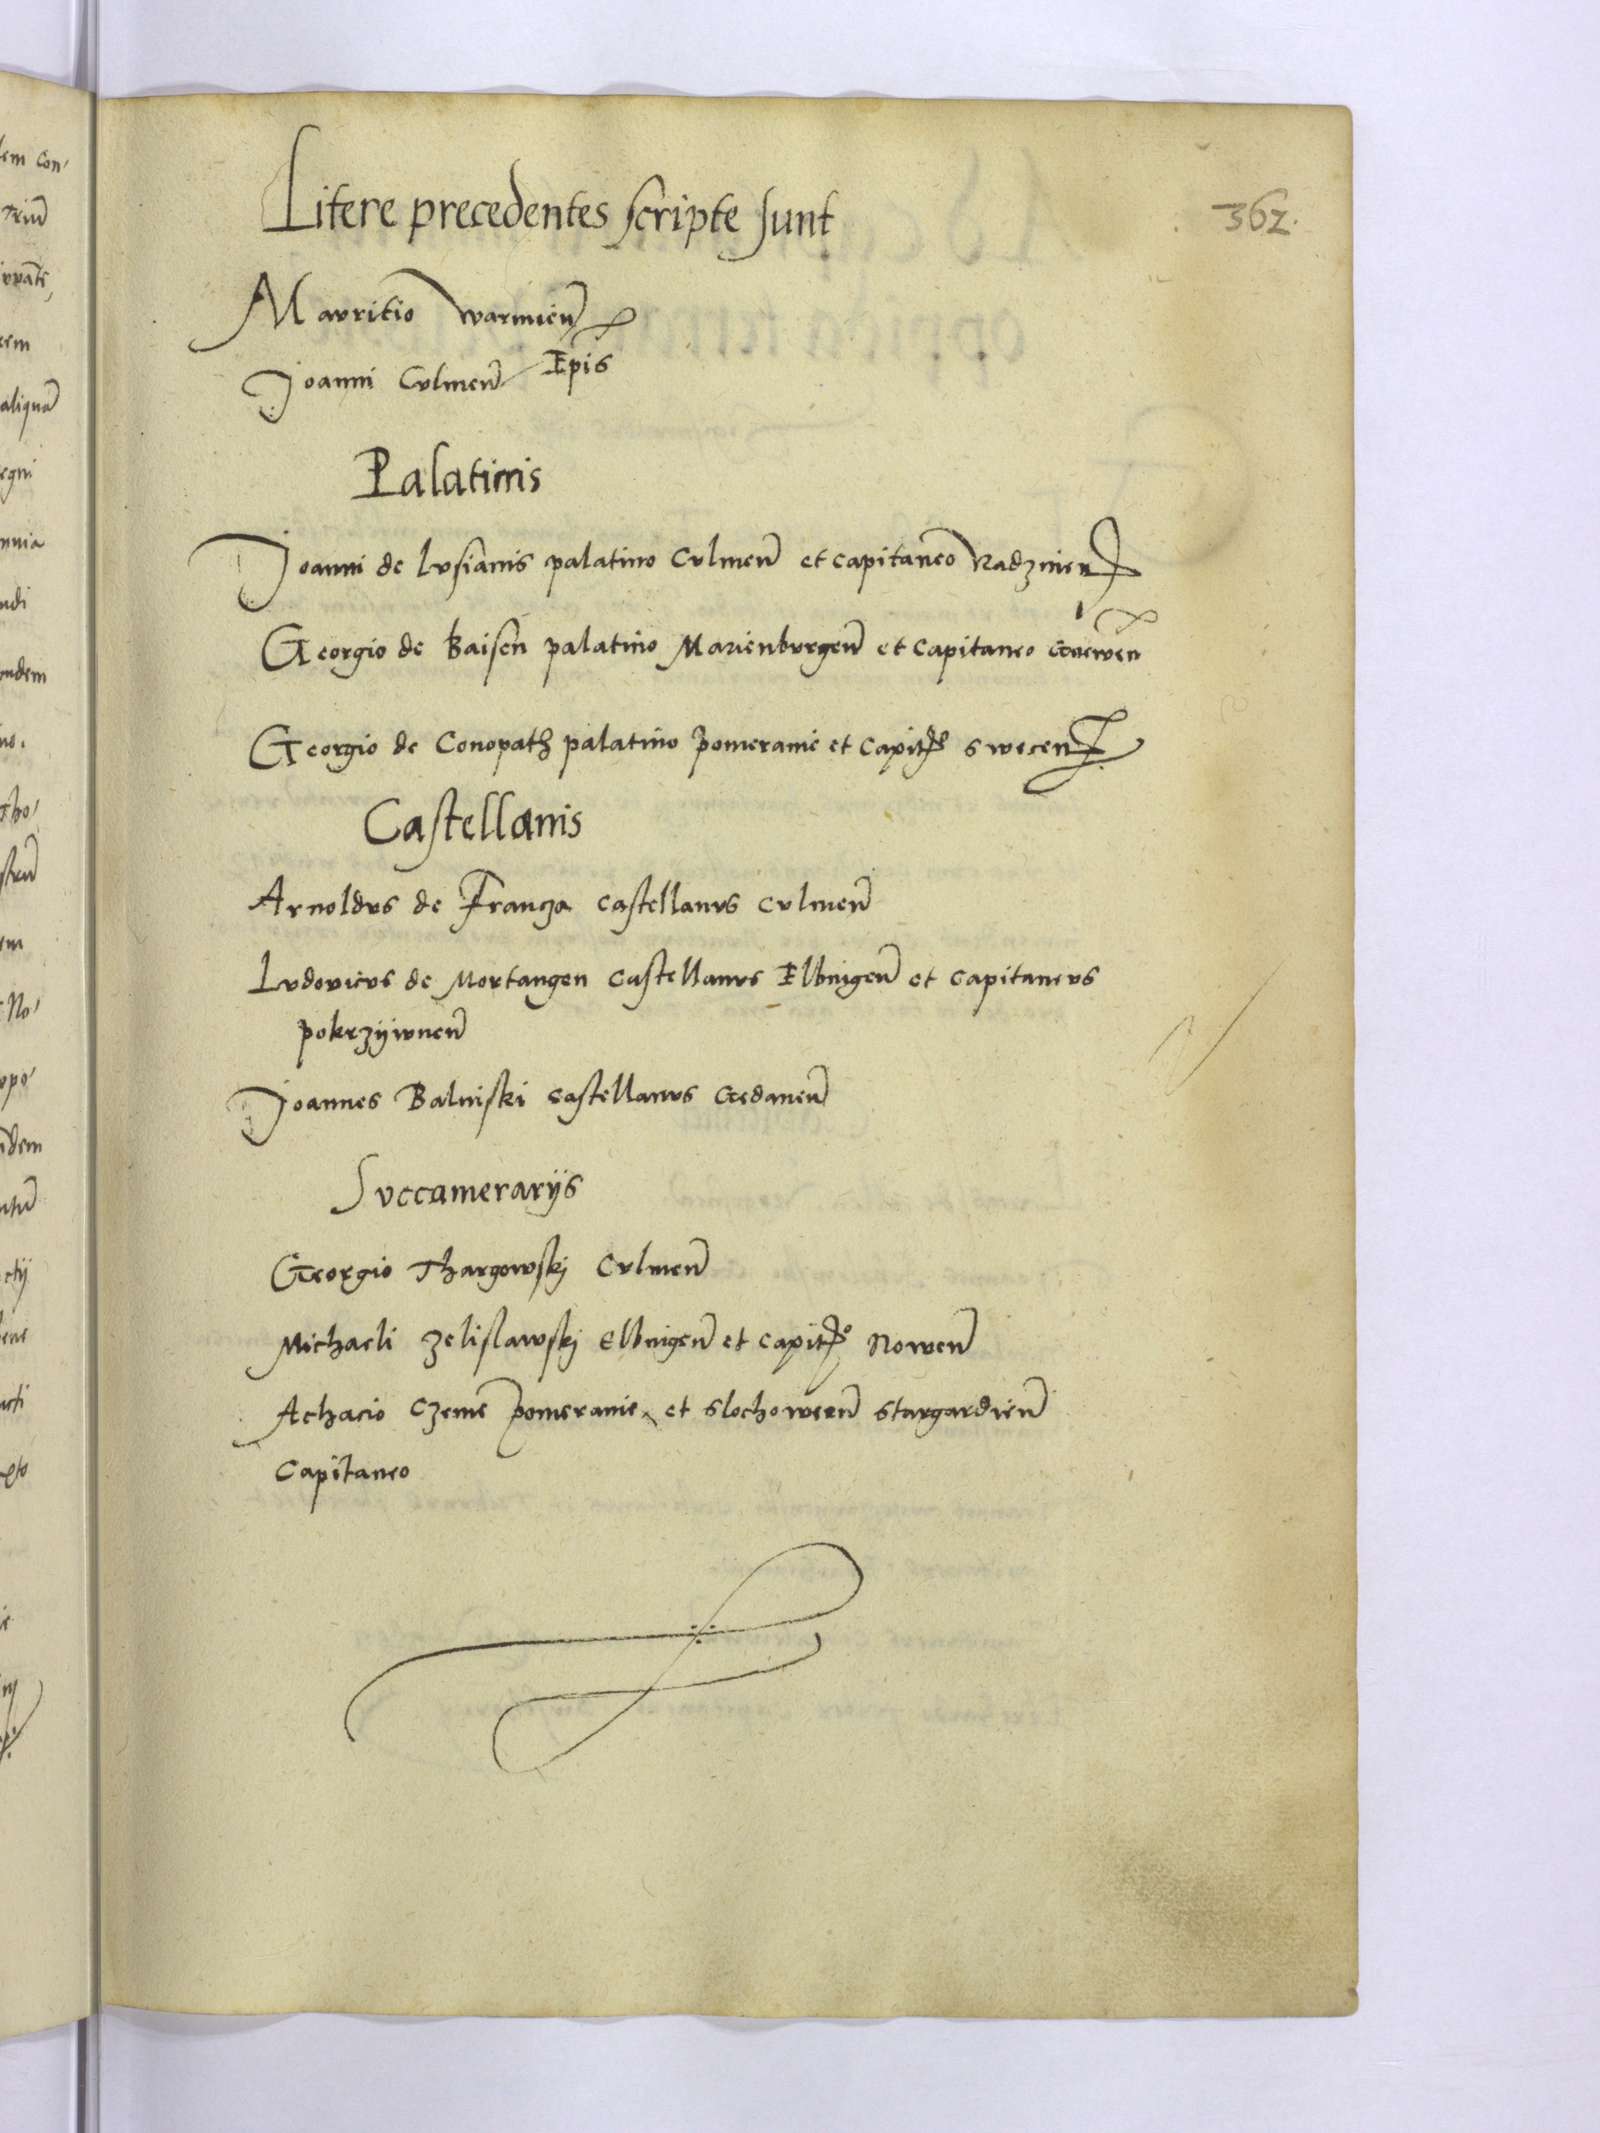 362.
Litere precedentes scripte sunt
Mauritio warmien̄
Epis
Joanni Culmen̄
Palatinis
Joanni de lusianis palatino Culmen̄ et capitaneo Radzinen
Georgio de Baisen palatino Marienburgen̄ et capitaneo
Georgio de Conopath palatino pomeranie et Capit̄o swecen
Castellanis
Arnoldus de Francza castellanus culmen̄
Ludovicus de Mortangen castellanus Elbingen̄ et capitaneus
pokrzÿwnen̄
Joannes Balinski castellanus Gedanen̄
Succamerarÿs
Georgio Thargowskj Culmen̄
Michaeli zelislawskj Elbingen̄ et capit̄o Nowen̄
Achacio czeme pomeranie et slochowen̄ stargardien̄
Capitaneo